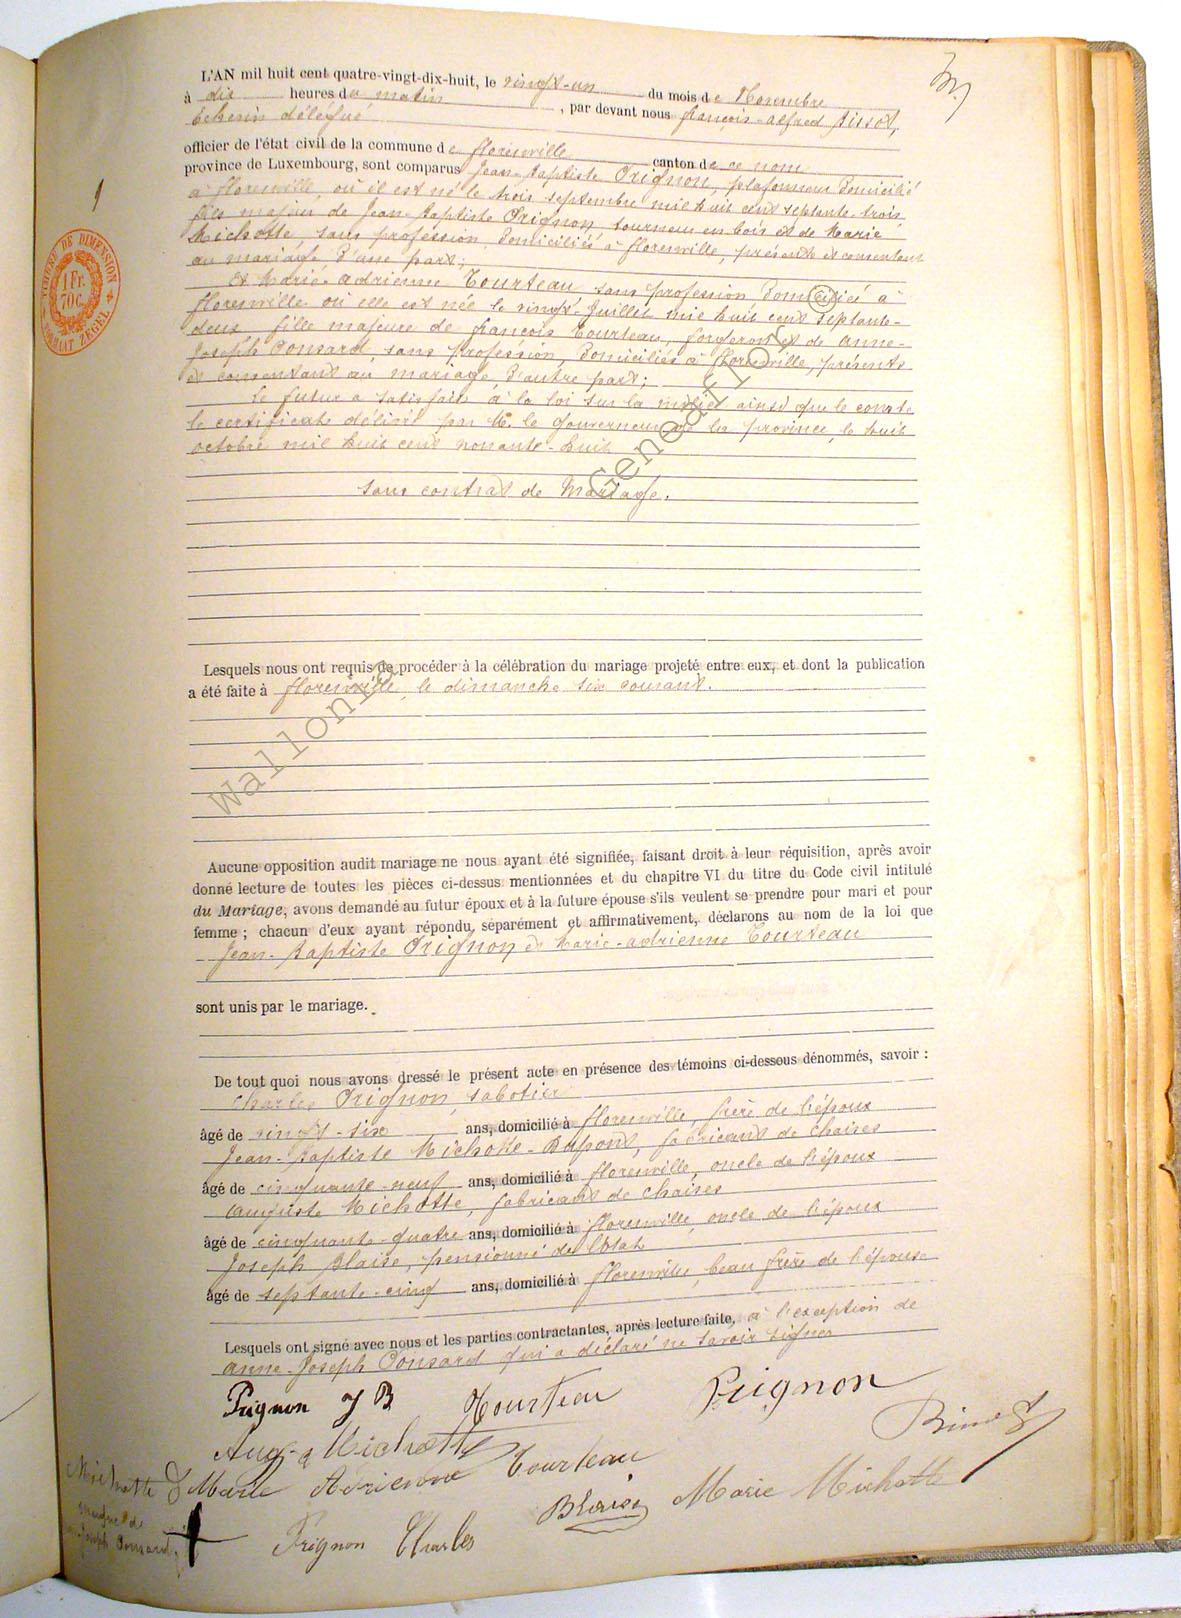 L'AN mil huit cent quatre-vingt-dix-huit, le vingt-un du mois de Novembre
à dix heures du matin, par devant nous françois-alfred
échevin délégué
officier de l'état civil de la commune de florenville canton de ce nom
province de Luxembourg, sont comparus Jean-Baptiste Prignon, plafonneur domicilié
à florenville, où il est né le trois septembre mil huit cent septante-trois
fils majeur de Jean-Baptiste Prignon, tourneur en bois et de Marie
Michotte, sans profession, domiciliés à florenville, présents et consentant
au mariage d'une part;
Et Marie-adrienne Tourteau sans profession, domiciliée à
florenville où elle est née le vingt-Juillet mil huit cent septante-
deux, fille majeure de françois Tourteau, forgeron et de anne-
Joseph Ponsard, sans profession, domiciliés à florenville, présents
et consentant au mariage, d'autre part;
Le futur a satisfait à la loi sur la milice ainsi que le constate
le certificat délivré par M. le Gouverneur de la province, le huit
octobre mil huit cent nonante-huit
sans contrat de Mariage.
Lesquels nous ont requis de procéder à la célébration du mariage projeté entre eux, et dont la publication
a été faite à florenville, le dimanche six courant.
Aucune opposition audit mariage ne nous ayant été signifiée, faisant droit à leur réquisition, après avoir
donné lecture de toutes les pièces ci-dessus mentionnées et du chapitre VI du titre du Code civil intitulé
du Mariage, avons demandé au futur époux et à la future épouse s'ils veulent se prendre pour mari et pour
femme ; chacun d'eux ayant répondu séparément et affirmativement, déclarons au nom de la loi que
Jean-Baptiste Prignon et Marie-adrienne Tourteau
sont unis par le mariage.
De tout quoi nous avons dressé le présent acte en présence des témoins ci-dessous dénommés, savoir :
Charles Prignon, sabotier
âgé de vingt-six ans, domicilié à florenville, frère de l'époux
Jean-Baptiste Michotte-Dupont, fabricant de chaises
âgé de cinquante-neuf ans, domicilié à florenville, oncle de l'époux
auguste Michotte, fabricant de chaises
âgé de cinquante-quatre ans, domicilié à florenville, oncle de l'époux
Joseph Blaise, pensionné de l'état
âgé de septante-cinq ans, domicilié à florenville, beau frère de l'épouse
Lesquels ont signé avec nous et les parties contractantes, après lecture faite, à l'exception de
anne-Joseph Ponsard qui a déclaré ne savoir signer
Prignon J B Tourteau Prignon
Aug. Michotte
Michotte J Marie Adrienne Tourteau
Blaise Marie Michotte
Prignon Charles
TIMBRE DE DIMENSION
1 Fr. 70 C.
FORMAAT ZEGEL
Wallonia Geneafloor ©